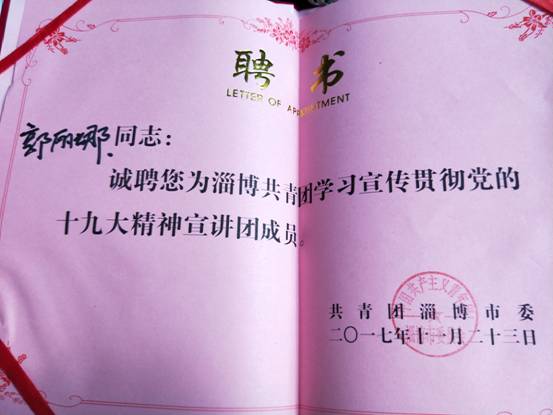 聘书
LETTER OF APPOINTMENT
郭丽娜同志：
诚聘您为淄博共青团学习宣传贯彻党的
十九大精神宣讲团成员。
共青团淄博市委
二〇一七年十一月二十三日